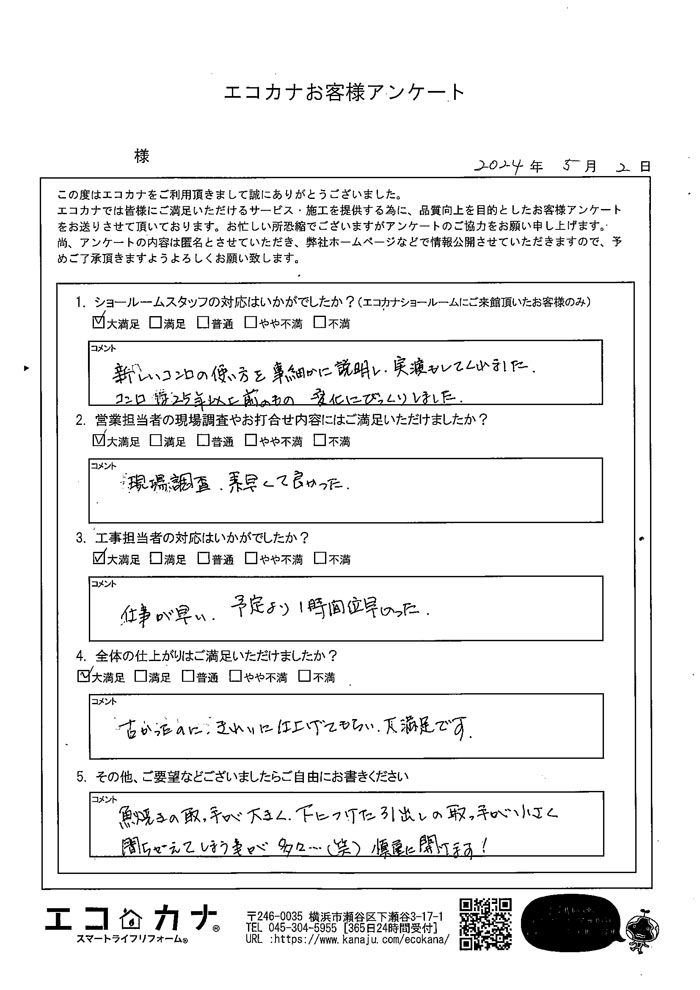 エコカナお客様アンケート
様
2024年 5月 2日
この度はエコカナをご利用頂きまして誠にありがとうございました。
エコカナでは皆様にご満足いただけるサービス・施工を提供する為に、品質向上を目的としたお客様アンケート
をお送りさせて頂いております。お忙しい所恐縮でございますがアンケートのご協力をお願い申し上げます。
尚、アンケートの内容は匿名とさせていただき、弊社ホームページなどで情報公開させていただきますので、予
めご了承頂きますようよろしくお願い致します。
1. ショールームスタッフの対応はいかがでしたか？(エコカナショールームにご来館頂いたお客様のみ)
☑大満足 □満足 □普通 □やや不満 □不満
コメント
新しいコンロの使い方を事細かに説明し、実演もしてくれました.
コンロは25年以上前のもの 変化にびっくりしました.
2. 営業担当者の現場調査やお打合せ内容にはご満足いただけましたか？
☑大満足 □満足 □普通 □やや不満 □不満
コメント
現場調査、素早くて良かった.
3. 工事担当者の対応はいかがでしたか？
☑大満足 □満足 □普通 □やや不満 □不満
コメント
仕事が早い. 予定より1時間位早かった.
4. 全体の仕上がりはご満足いただけましたか？
☑大満足 □満足 □普通 □やや不満 □不満
コメント
古かったのに きれいに仕上げてもらい、大満足です.
5. その他、ご要望などございましたらご自由にお書きください
コメント
魚焼きの取っ手が大きく、下につけた引出しの取っ手が小さく
間ちがえてしまう事が 多々…(笑) 慎重に開けます!
エコカナ®
スマートライフリフォーム®
〒246-0035 横浜市瀬谷区下瀬谷3-17-1
TEL 045-304-5955 [365日24時間受付]
URL :https://www.kanaju.com/ecokana/